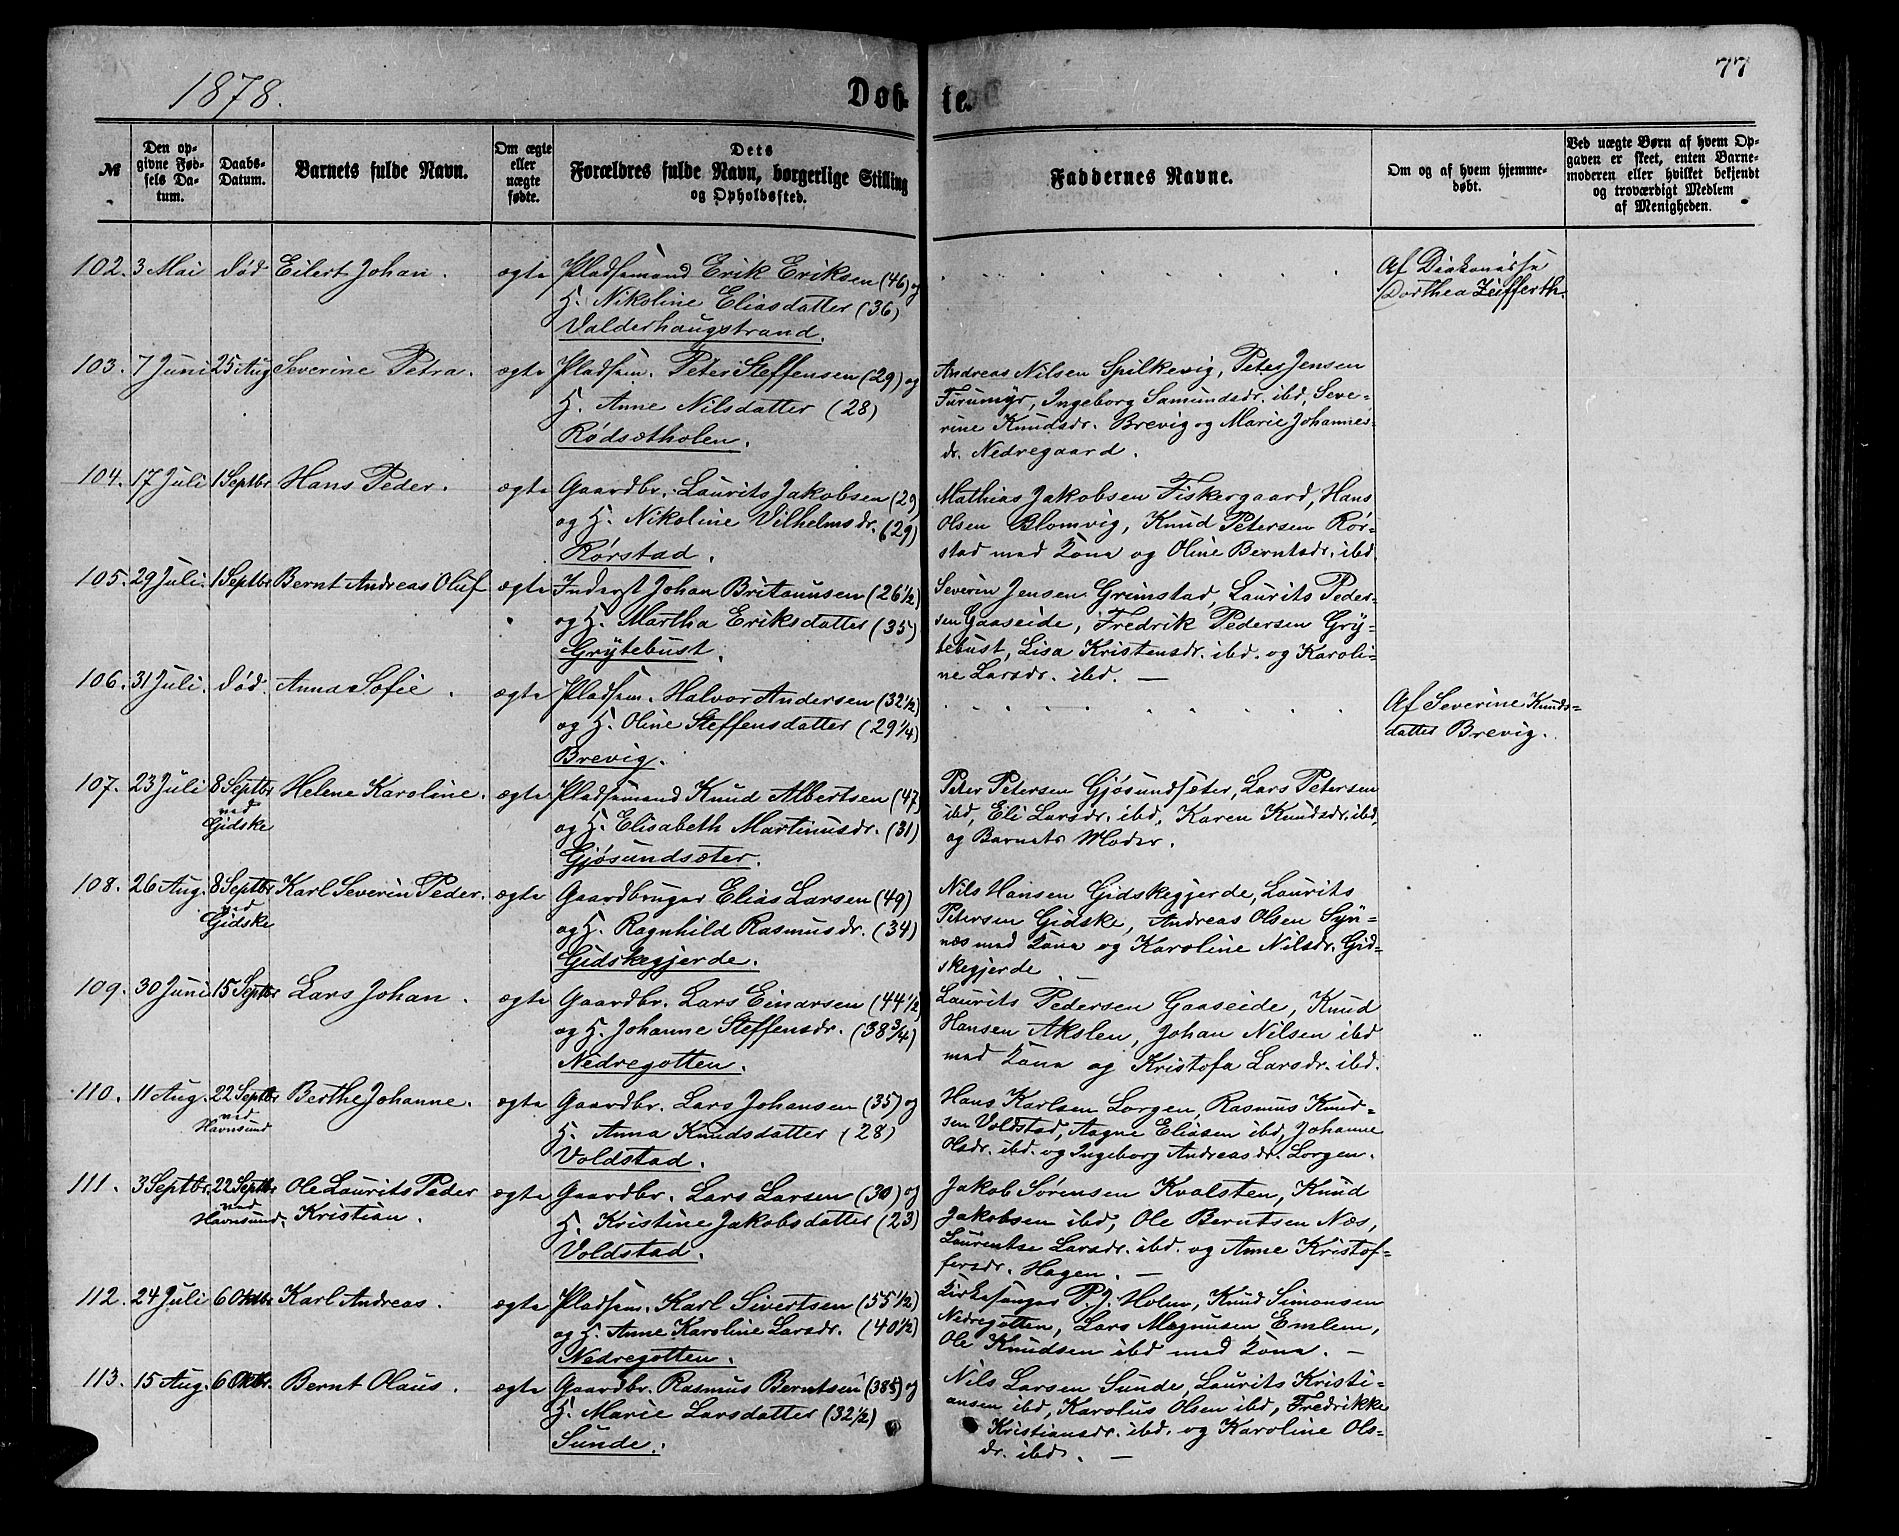 1878.
Døb
te.
77
№
Den op-
givne Fød-
sels Da-
tum.
Daabs-
Datum.
Barnets fulde Navn.
Om ægte
eller
uægte
fødte.
Dets
Forældres fulde Navn, borgerlige Stilling
og Opholdssted.
Faddernes Navne.
Om og af hvem hjemme-
døbt.
Ved uægte Børn af hvem Op-
gaven er skeet, enten Barne-
moderen eller hvilket bekjendt
og troværdigt Medlem
af Menigheden.
102. 3 Mai død Eilert Johan. ægte Pladsemand Erik Eriksen (46) og
H. Nikoline Eliasdatter (36)
Valderhaugstrand.
Af Diakonisse
Dorthea Zeifferth.
103. 7 Juni 25 Aug Severine Petra. ægte Pladsem. Peter Steffensen (29) og
H. Anne Nilsdatter (28)
Rødsætholen.
Andreas Nilsen Spilkevig, Peter Jensen
Furumyr, Ingeborg Samundsdr. ibd, Seve-
rine Knudsdr. Brevig og Marie Johannes-
dr. Nedregaard.
104. 17 Juli 1 Septbr Hans Peder. ægte Gaardbr. Laurits Jakobsen (29)
og H. Nikoline Vilhelmsdr. (29)
Rørstad.
Mathias Jakobsen Fiskergaard, Hans
Olsen Blomvig, Knud Petersen Rør-
stad med Kone og Oline Berntsdr. ibd
105. 29 Juli. 1 Septbr Bernt Andreas Oluf ægte Inderst Johan Britanusen (26 1/2)
og H. Martha Eriksdatter (35)
Grytebust.
Severin Jensen Grimstad, Laurits Peder-
sen Gaaseide, Fredrik Pedersen Gry-
tebust, Lisa Kristensdr. ibd. og Karoli-
ne Larsdr. ibd. —
106. 31 Juli. død. Anna Sofie. ægte Pladsem. Halvor Andersen (32 1/2)
og H. Oline Steffensdatter (29 1/4)
Brevig.
Af Severine Knuds-
datter Brevig.
107. 23 Juli 8 Septbr ved Gidske Helene Karoline. ægte Pladsemand Knud Albertsen (47)
og H. Elisabeth Martinusdr. (31)
Gjøsundsæter.
Peter Petersen Gjøsundsæter, Lars Petersen
ibd, Eli Larsdr. ibd, Karen Knudsdr. ibd,
og Barnets Moder.
108. 26 Aug. 8 Septbr ved Gidske Karl Severin Peder. ægte Gaardbruger Elias Larsen (49)
og H. Ragnhild Rasmusdr. (34)
Gidskegjerde.
Nils Hansen Gidskegjerde, Laurits
Petersen Gidske, Andreas Olsen Syn-
næs med Kone og Karoline Nilsdr. Gid-
skegjerde
109. 30 Juni 15 Septbr Lars Johan. ægte Gaardbr. Lars Einarsen (44 1/2)
og H. Johanne Steffensdr. (38 3/4)
Nedregotten.
Laurits Pedersen Gaaseide, Knud
Hansen Akslen, Johan Nilsen ibd
med Kone og Kristofa Larsdr. ibd.
110. 11 Aug. 22 Septbr ved Havnsund Berthe Johanne. ægte Gaardbr. Lars Johansen (35) og
H. Anna Knudsdatter (28)
Voldstad.
Hans Karlsen Lorgen, Rasmus Knud-
sen Voldstad, Aagne Eliasen ibd, Johanne
Olsdr. ibd. og Ingeborg Andreasdr. Lorgen.
111. 3 Septbr. 22 Septbr ved Havnsund. Ole Laurits Peder ægte Gaardbr. Lars Larsen (30) og
Kristian. H. Kristine Jakobsdatter (23)
Voldstad.
Jakob Sørensen Kvalsten, Knud
Jakobsen ibd, Ole Berntsen Næs,
Laurentse Larsdr. ibd. og Anne Kristof-
fersdr. Hagen. —
112. 24 Juli 6 Oktbr Karl Andreas. ægte Pladsem. Karl Sivertsen (55 1/2)
og H. Anne Karoline Larsdr. (40 1/2)
Nedregotten.
Kirkesanger P. J. Holm, Knud Simonsen
Nedregotten, Lars Magnusen Emlem,
Ole Knudsen ibd med Kone. —
113. 15 Aug. 6 Oktbr. Bernt Olaus. ægte Gaardbr. Rasmus Berntsen (38) og
H. Marie Larsdatter (32 1/2)
Sunde.
Nils Larsen Sunde, Laurits Kristi-
ansen ibd, Karolus Olsen ibd, Fredrikke
Kristiansdr. ibd. og Karoline Ols-
dr. ibd. —